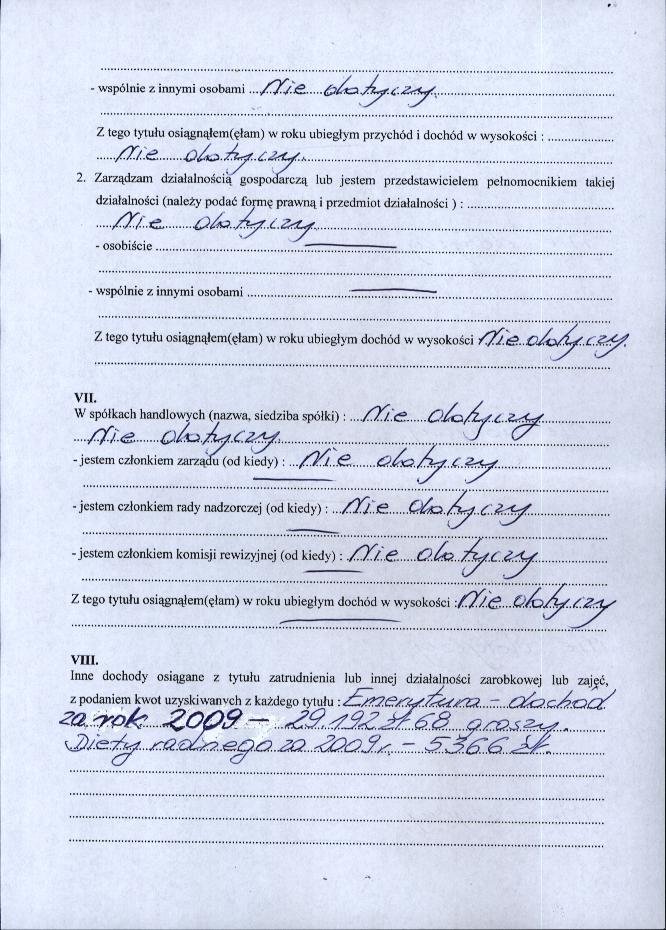 - wspólnie z innymi osobami ...Nie dotyczy.
Z tego tytułu osiągnąłem(ęłam) w roku ubiegłym przychód i dochód w wysokości : ................
.....Nie dotyczy.
2. Zarządzam działalnością gospodarczą lub jestem przedstawicielem pełnomocnikiem takiej
działalności (należy podać formę prawną i przedmiot działalności ) : ................
.....Nie dotyczy
- osobiście ................
- wspólnie z innymi osobami ................
Z tego tytułu osiągnąłem(ęłam) w roku ubiegłym dochód w wysokości Nie dotyczy.
VII.
W spółkach handlowych (nazwa, siedziba spółki) : ...Nie dotyczy
...Nie dotyczy.
- jestem członkiem zarządu (od kiedy) : ...Nie dotyczy
- jestem członkiem rady nadzorczej (od kiedy) : ...Nie dotyczy
- jestem członkiem komisji rewizyjnej (od kiedy) : Nie dotyczy
Z tego tytułu osiągnąłem(ęłam) w roku ubiegłym dochód w wysokości : Nie dotyczy
VIII.
Inne dochody osiągane z tytułu zatrudnienia lub innej działalności zarobkowej lub zajęć,
z podaniem kwot uzyskiwanych z każdego tytułu : Emerytura – dochód
za rok 2009 – 29.192 zł 68 groszy.
Diety radnego za 2009 r. – 5366 zł.